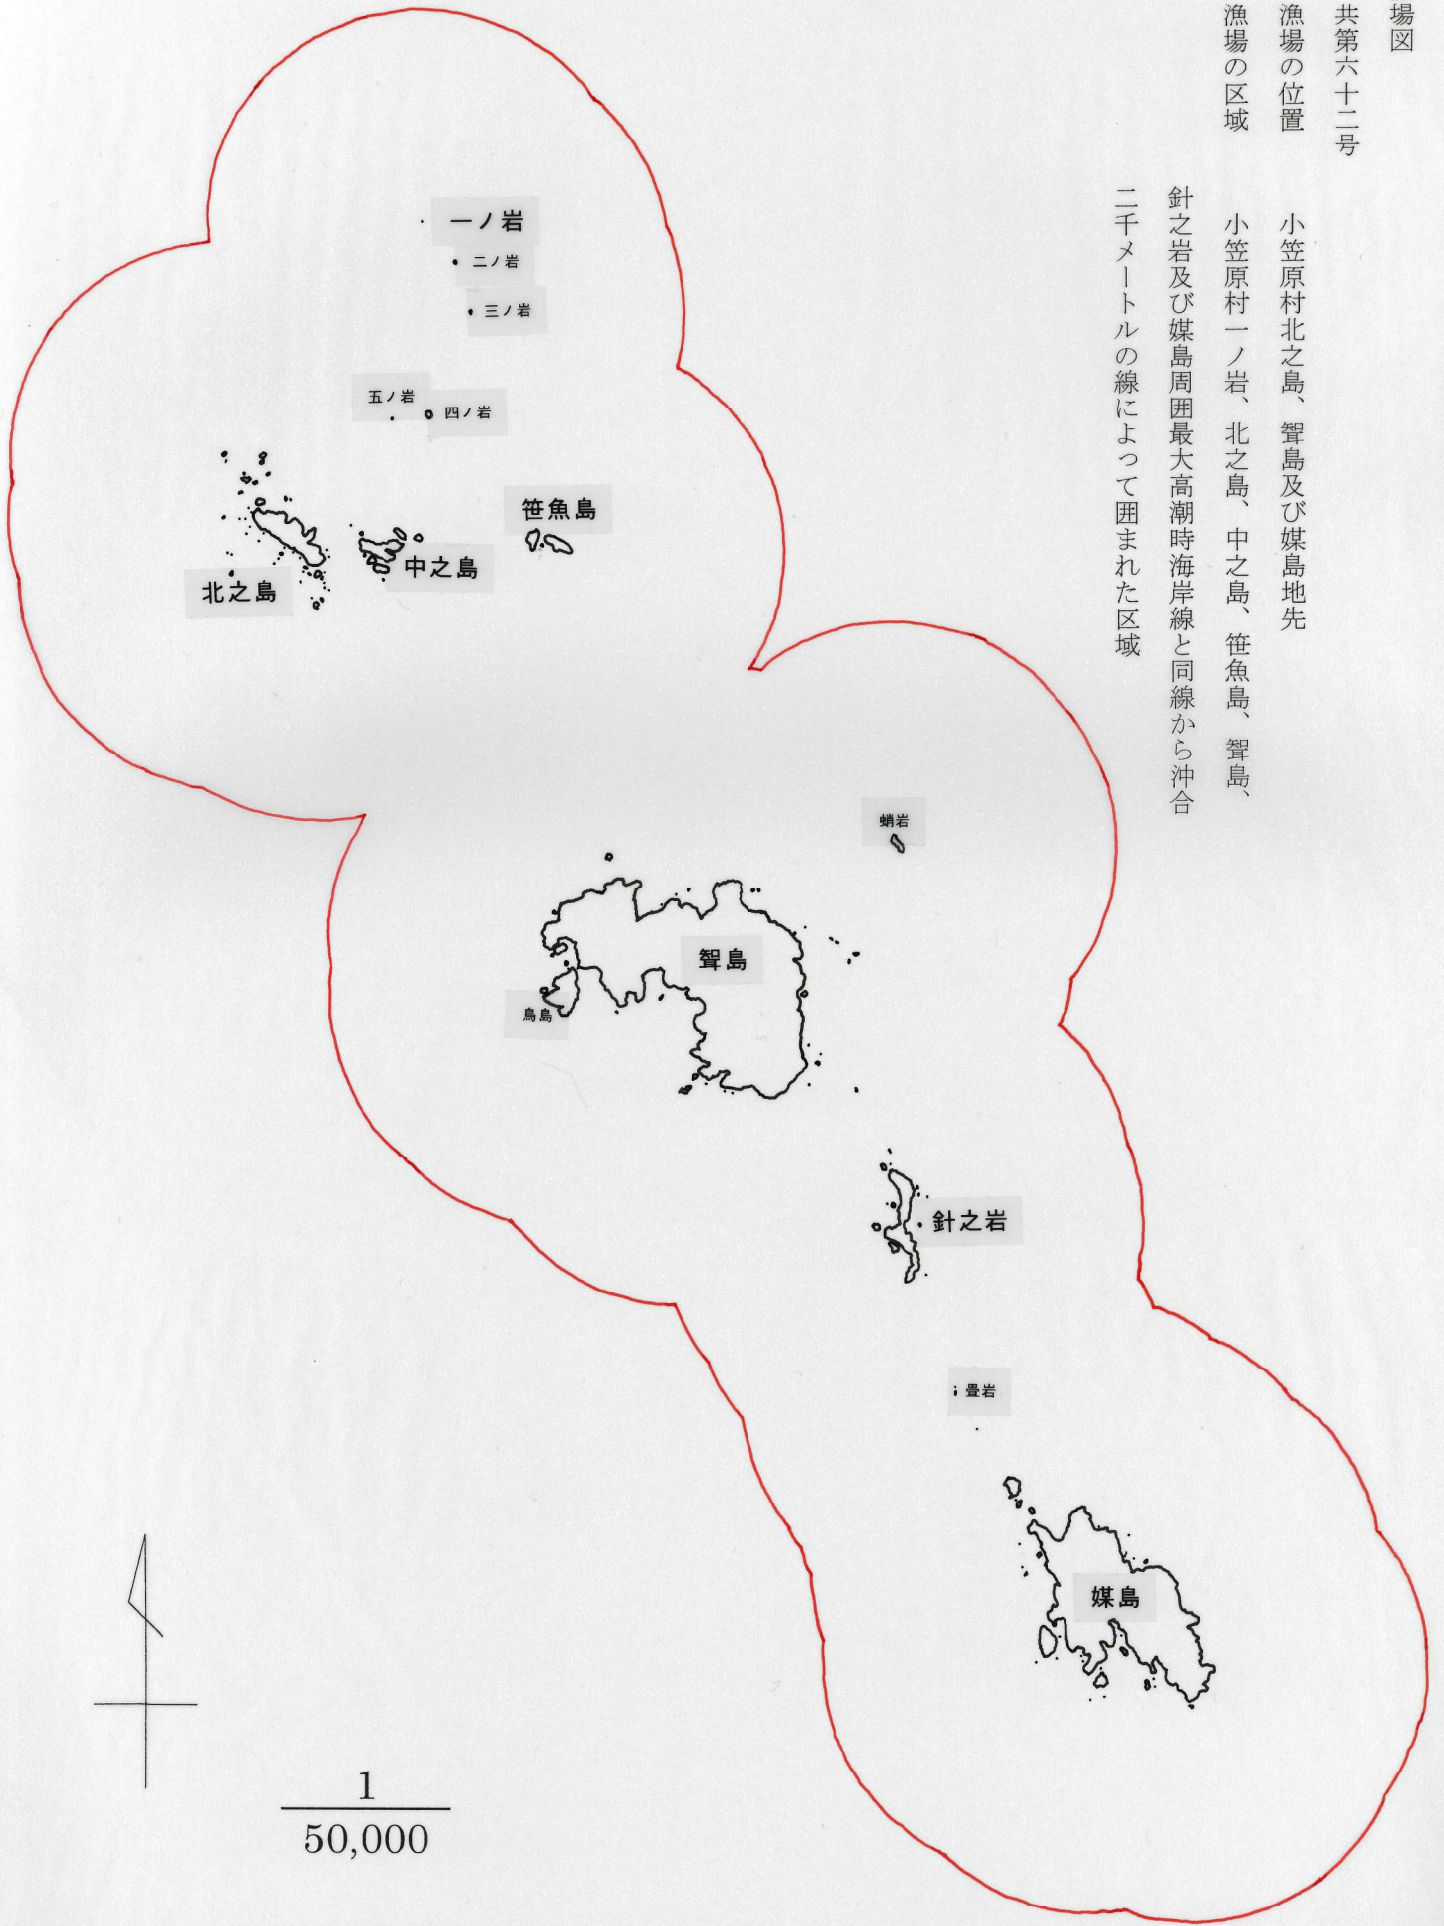 場図
共第六十二号
漁場の位置　小笠原村北之島、聟島及び媒島地先
漁場の区域　小笠原村一ノ岩、北之島、中之島、笹魚島、聟島、
針之岩及び媒島周囲最大高潮時海岸線と同線から沖合
二千メートルの線によって囲まれた区域
一ノ岩
二ノ岩
三ノ岩
五ノ岩
四ノ岩
笹魚島
中之島
北之島
蛸岩
聟島
鳥島
針之岩
畳岩
媒島
1
50,000